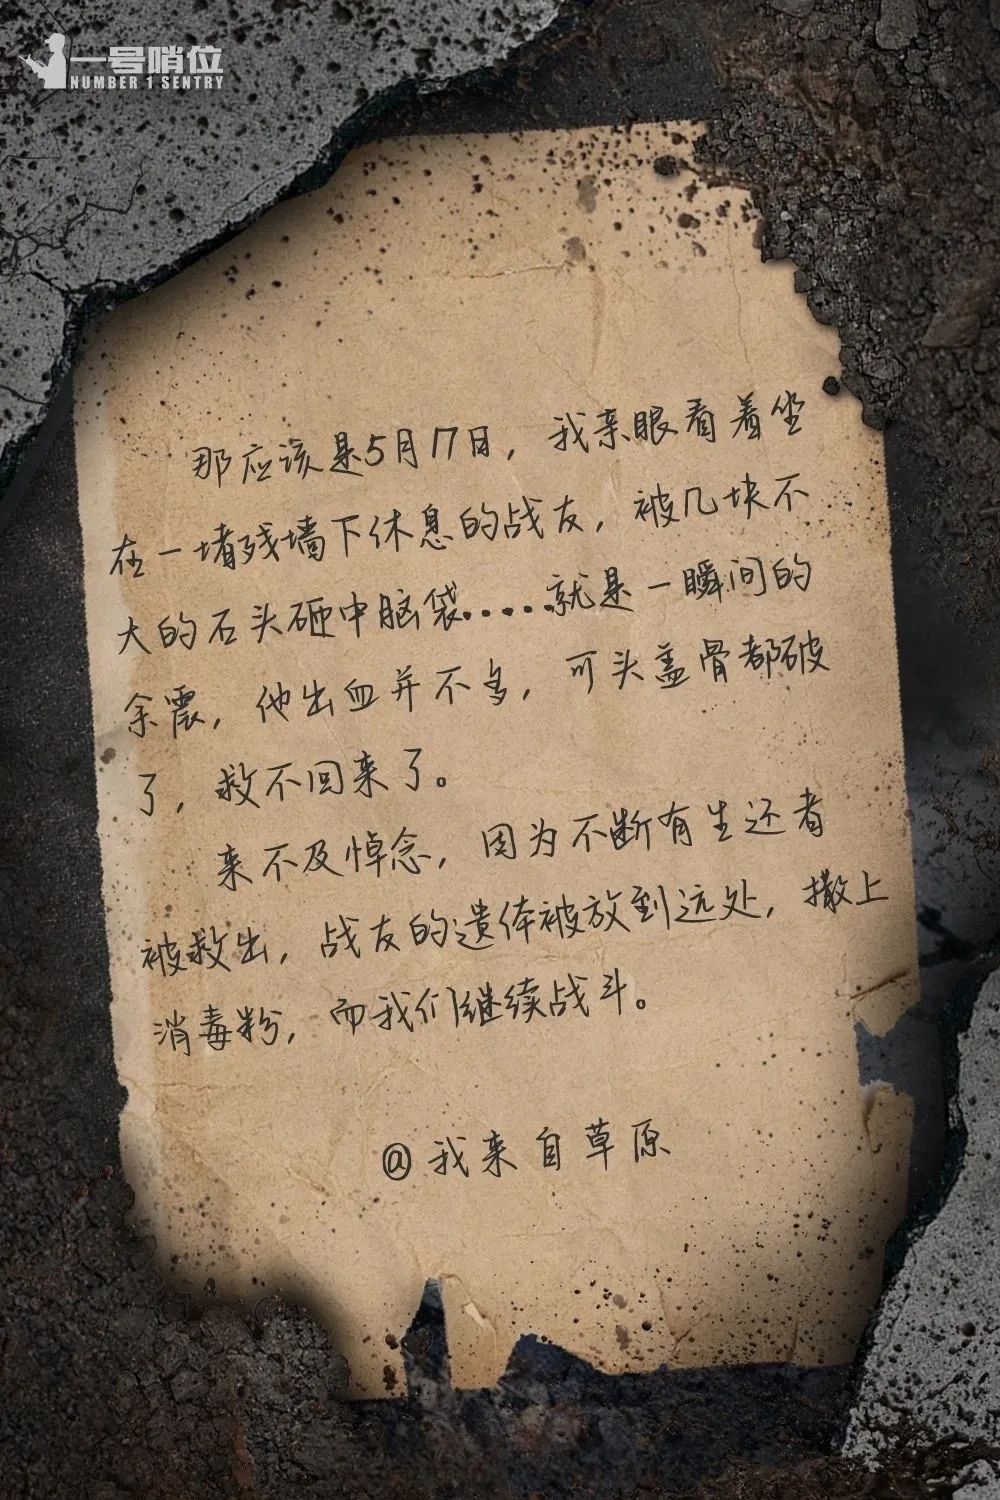 一号哨位
NUMBER 1 SENTRY
那应该是5月17日，我亲眼看着坐
在一堵残墙下休息的战友，被几块不
大的石头砸中脑袋.....就是一瞬间的
余震，他出血并不多，可头盖骨都破
了，救不回来了。
来不及悼念，因为不断有生还者
被救出，战友的遗体被放到远处，撒上
消毒粉，而我们继续战斗。
@我来自草原